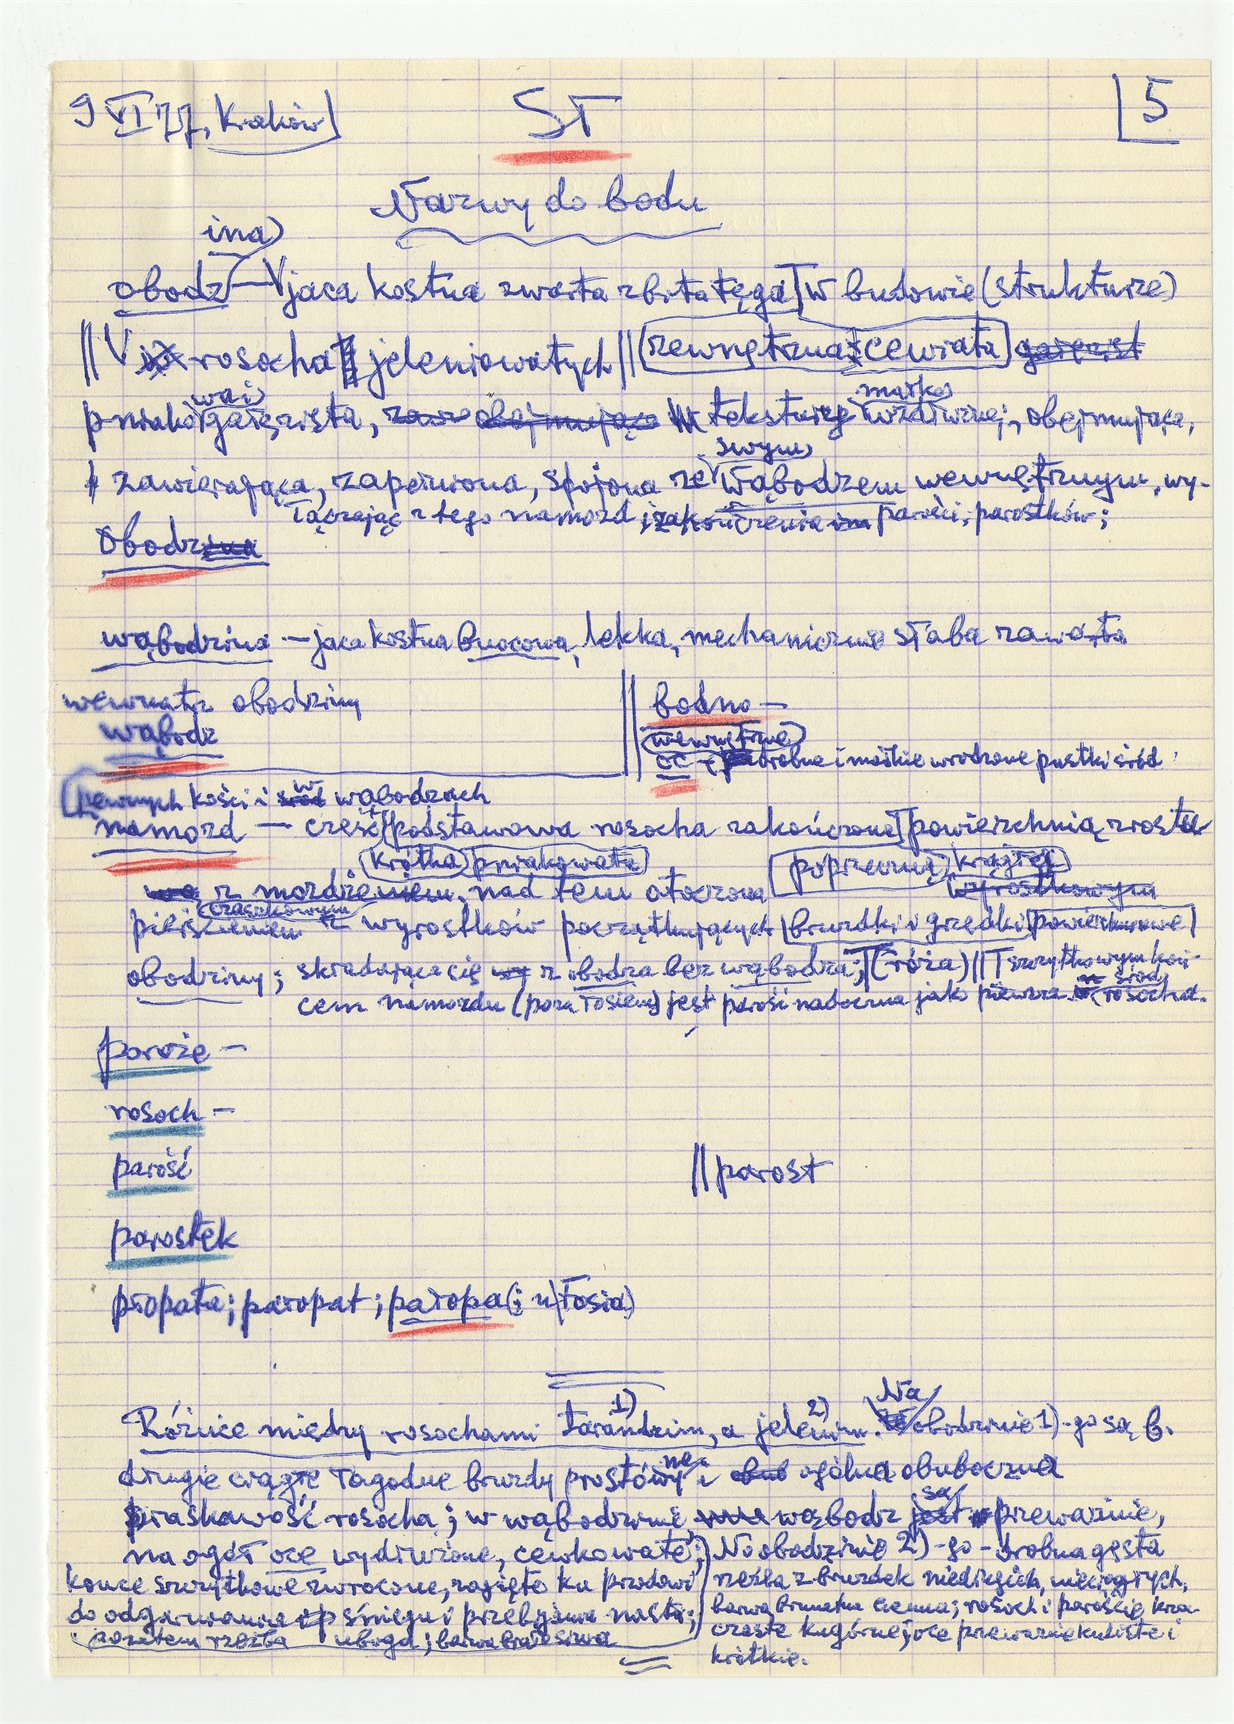 9 VI 77, Kraków
ST
5
Nazwy do bodu
ina
obodz — jaca kostna zwarta zbita tęga w budowie (strukturze)
|| V rosocha jeleniowatych || zewnętrzna; cewiata
wai
pniako gałęzista, teksturze wzdłużnej, obejmująca,
swym
zawierająca, zapełniona, spojona ze wąbodzem wewnętrznym, wy-
łączając z tego namozd i zakończenia parości, parostków;
obodz
wąbodzina — jaca kostna buocowa, lekka, mechanicznie słaba zawarta
wewnątrz obodziny
wąbodz
|| bodno —
wewnętrzne
oc — drobne i miałkie wrodzone pustki śród
pewnych kości i w wąbodzach
namozd — część podstawowa rosocha zakończona powierzchnią zrostu
krótka pniakowata
poprzeczną, krągłej
z możdżeniem, nad tem otoczona
czaszkowym
pierścieniem z wyrostków początkujących bruzdki i grzędki powierzchniowe
obodziny; składająca się z obodza bez wąbodza; (róża) || szczytowym koń-
cem namozdu (poza łosiem) jest parość nadoczna jako pierwsza śród rosocha.
poroże —
rosoch —
parość
|| parost
parostek
propata; paropat; paropa (i u łosia)
Różnice między rosochami tarandzim 1), a jelenim 2). Na obodzinie 1)-go są b.
długie ciągłe łagodne bruzdy prostowne i ogólna obuboczna
płaskawość rosocha; w wąbodzinie wąbodz są przeważnie,
na ogół oce wydłużone, cewkowate;
końce szczytkowe zwrócone, zagięte ku przodowi
do odgarniania śniegu i przebijania nastu;
pozatem rzeźba uboga; barwa
Na obodzinie 2)-go - drobna gęsta
rzeźba z bruzdek niedługich, nieciągłych,
barwa brunatna ciemna; rosoch i paroście
czaste ku górze; oce przeważnie kuliste i
krótkie.